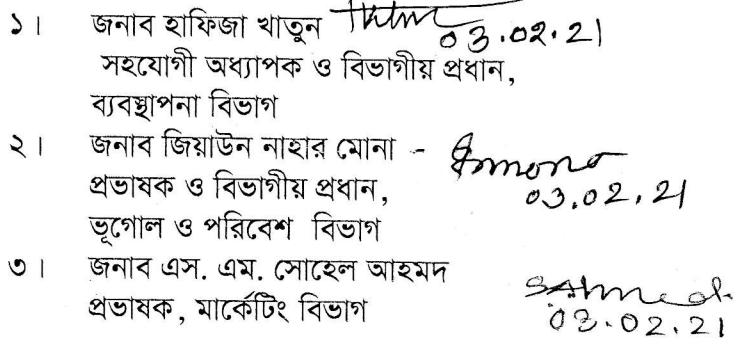 ১। জনাব হাফিজা খাতুন
03.02.21
সহযোগী অধ্যাপক ও বিভাগীয় প্রধান,
ব্যবস্থাপনা বিভাগ
২। জনাব জিয়াউন নাহার মোনা -
প্রভাষক ও বিভাগীয় প্রধান,
03.02.21
ভূগোল ও পরিবেশ বিভাগ
৩। জনাব এস. এম. সোহেল আহমদ
SAhmed.
প্রভাষক, মার্কেটিং বিভাগ
03.02.21